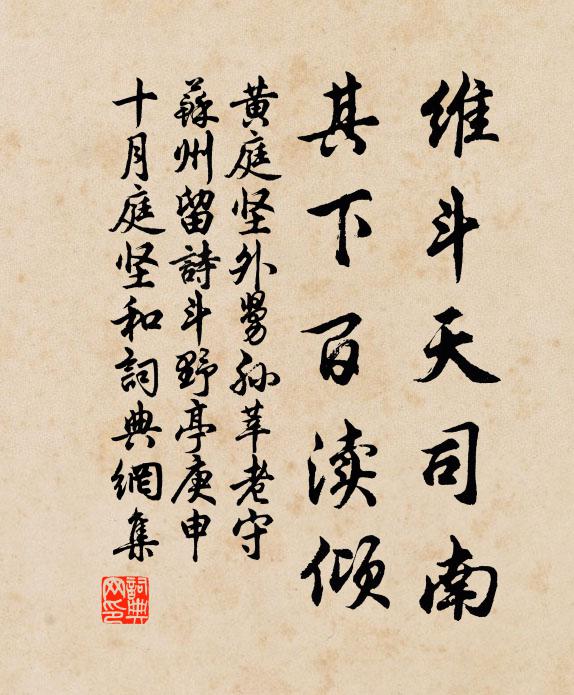 维斗天司南
其下百渎倾
黄庭坚外舅孙莘老守
苏州留詩斗野亭庚申
十月庭坚和詞典網集
詞典網印